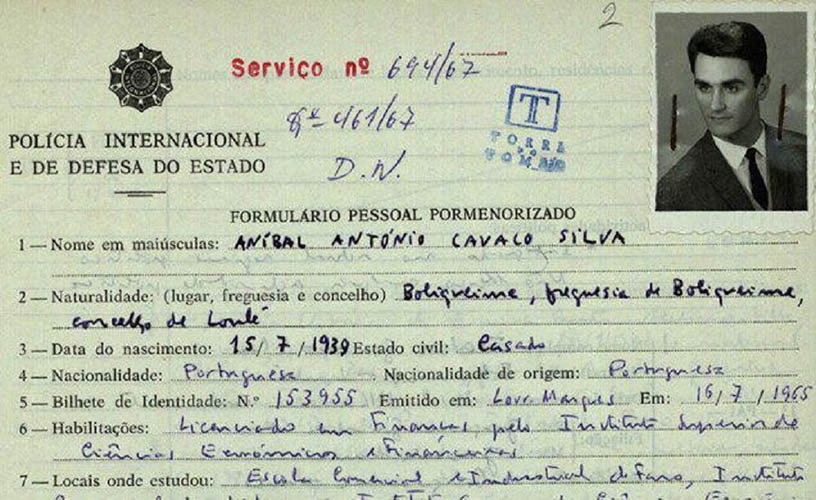 2
Serviço nº 694/67
461/67
D.N.
T
TORRE
DO
TOMBO
POLÍCIA INTERNACIONAL
E DE DEFESA DO ESTADO
FORMULÁRIO PESSOAL PORMENORIZADO
1 — Nome em maiúsculas: ANÍBAL ANTÓNIO CAVACO SILVA
2 — Naturalidade: (lugar, freguesia e concelho) Boliqueime, freguesia de Boliqueime,
concelho de Loulé
3 — Data do nascimento: 15/7/1939 Estado civil: Casado
4 — Nacionalidade: Portuguesa Nacionalidade de origem: Portuguesa
5 — Bilhete de Identidade: N.º 153955 Emitido em: Lour. Marques Em: 16/7/1965
6 — Habilitações: Licenciado em Finanças pelo Instituto Superior de
Ciências Económicas e Financeiras
7 — Locais onde estudou: Escola Comercial e Industrial de Faro, Instituto